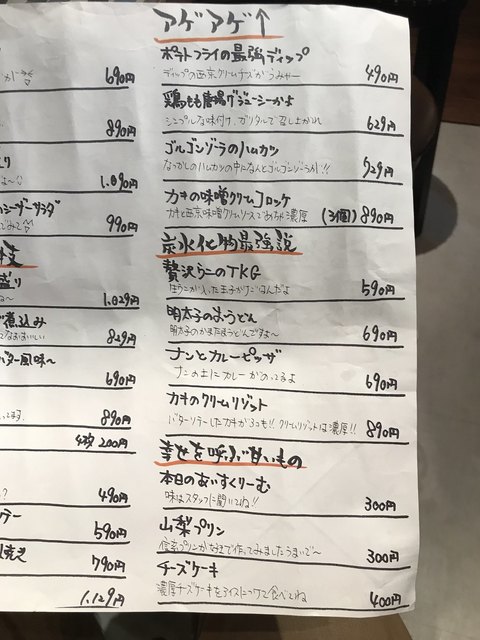 690円
890円
1.090円
シーザーサラダ
990円
盛り
1.029円
煮込み
829円
バター風味〜
690円
890円
4枚 200円
490円
590円
焼き
790円
1.129円
アゲアゲ↑
ポテトフライの最強ディップ
ディップの西京クリームチーズがうみゃー
490円
鶏もも唐揚げジューシーかよ
シンプルな味付け、ガリタルで召し上がれ
629円
ゴルゴンゾーラのハムカツ
なつかしのハムカツの中になんとゴルゴンゾーラが!!
729円
カキの味噌クリームコロッケ
カキと西京味噌クリームソースでめちゃ濃厚
(3個) 890円
炭水化物最強説
贅沢うにのTKG
生うにが入った玉子かけごはんだよ
590円
明太子のまうどん
明太子のかまたまうどんですよ〜
690円
ナンとカレーピッザ
ナンの上にカレーがのってるよ
690円
カキのクリームリゾット
バターソテーしたカキが3つも!! クリームリゾットは濃厚!!
890円
幸せを呼ぶ甘いもの
本日のあいすくりーむ
味はスタッフに聞いてね!!
300円
山梨プリン
信玄プリンが自社で作ってみましたうまいで〜
300円
チーズケーキ
濃厚チーズケーキをアイスにつけて食べてね
400円